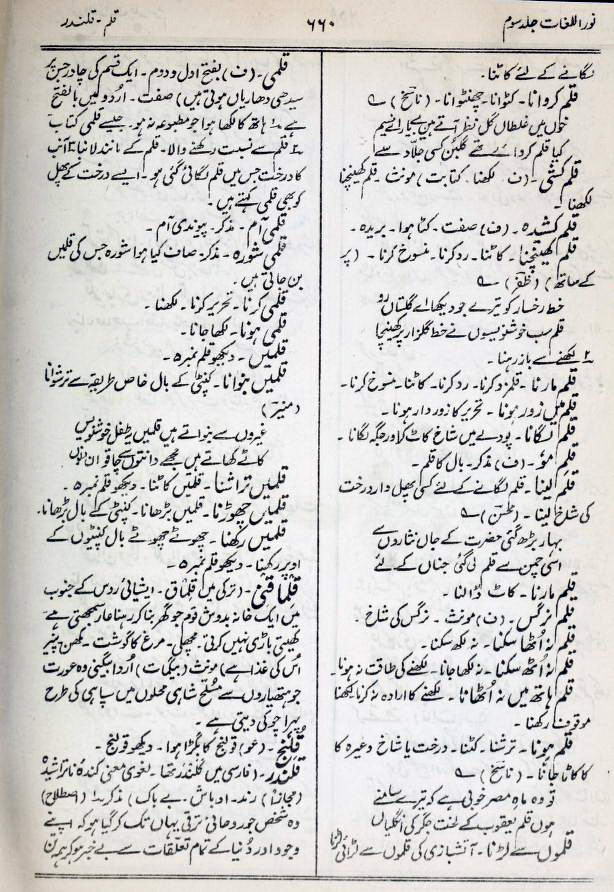 نور اللغات جلد سوم
۶۶۰
قلم - قلندر
لگانے کے لئے کاٹنا۔
قلم کروانا۔ کٹوانا۔ چھنٹوانا۔ (ناسخ) ؎
خوں میں غلطاں گل نظر آتے ہیں بے یار اے نسیم
کیا قلم کروائے تھے گلبن کسی جلاد سے
قلم کشی۔ (ف۔ لکھنا۔ کتابت) مونث۔ قلم کھینچنا
لکھنا۔
قلم کشیدہ۔ (ف) صفت۔ کٹا ہوا۔ بریدہ۔
قلم کھینچنا۔ کاٹنا۔ رد کرنا۔ منسوخ کرنا۔ (پر
کے ساتھ) (ظفر) ؎
خط رخسار کو تیرے جو دیکھا اے گلستاں رو
قلم سب خوشنویسوں نے خط گلزار پر کھینچا
۲۔ لکھنے سے باز رہنا۔
قلم مارنا۔ قلمزد کرنا۔ رد کرنا۔ کاٹنا۔ منسوخ کرنا۔
قلم میں زور ہونا۔ تحریر کا زوردار ہونا۔
قلم لگانا۔ پودے میں شاخ کاٹ کر اور جگہ لگانا۔
قلم مو۔ (ف) مذکر۔ بال کا قلم۔
قلم لینا۔ قلم لگانے کے لئے کسی پھل دار درخت
کی شاخ لینا۔ (محسن) ؎
بہار بڑھ گئی حضرت کے جاں نثاروں سے
اسی چمن سے قلم لی گئی جناں کے لئے
قلم مارنا۔ کاٹ ڈالنا۔
قلم نرگس۔ (ف) مونث۔ نرگس کی شاخ۔
قلم نہ اٹھا سکنا۔ نہ لکھ سکنا۔
قلم نہ اٹھ سکنا۔ نہ لکھا جانا۔ لکھنے کی طاقت نہ ہونا۔
قلم ہاتھ میں نہ اٹھانا۔ لکھنے کا ارادہ نہ کرنا لکھنا
موقوف رکھنا۔
قلم ہونا۔ ترشنا۔ کٹنا۔ درخت یا شاخ وغیرہ کا
کاٹا جانا۔ (ناسخ) ؎
تو وہ ماہ مصر خوبی ہے کہ تیرے سامنے
ہوں قلم یعقوب کے لخت جگر کی انگلیاں
قلموں سے لڑنا۔ آتشبازی کی قلموں سے لڑائی لڑنا
قلمی۔ (ف) بفتح اول و دوم۔ ایک قسم کی چادر جس پر
سیدھی دھاریاں ہوتی ہیں) صفت۔ اردو میں بالفتح
ہے ۱۔ ہاتھ کا لکھا ہوا جو مطبوعہ نہ ہو۔ جیسے قلمی کتاب
۲۔ قلم سے نسبت رکھنے والا۔ قلم کے مانند لانبا ۳۔ آنب
کا درخت جس میں قلم لگائی گئی ہو۔ ایسے درخت کے پھل
کو بھی قلمی کہتے ہیں۔
قلمی آم۔ مذکر۔ پیوندی آم۔
قلمی شورہ۔ مذکر۔ صاف کیا ہوا شورہ جس کی قلمیں
بن جاتی ہیں۔
قلمی کرنا۔ تحریر کرنا۔ لکھنا۔
قلمی ہونا۔ لکھا جانا۔
قلمیں۔ دیکھو قلم نمبر ۵۔
قلمیں بنوانا۔ کنپٹی کے بال خاص طریقہ سے ترشوانا
(منیر)
غیروں سے بنواتے ہیں قلمیں یہ طفل خوشنویس
کاٹے کھاتے ہیں مجھے دانتوں سے چاقو ان دنوں
قلمیں تراشنا۔ قلمیں کاٹنا۔ دیکھو قلم نمبر ۵۔
قلمیں چھوڑنا۔ قلمیں بڑھانا۔ کنپٹی کے بال بڑھانا۔
قلمیں رکھنا۔ چھوٹے چھوٹے بال کنپٹیوں کے
اوپر رکھنا۔ دیکھو قلم نمبر ۵۔
قلماقنی۔ (ترکی میں قلماق۔ ایشیائی روس کے جنوب
میں ایک خانہ بدوش قوم جو گھر بنا کر رہنا عار سمجھتی ہے
کھیتی باڑی نہیں کرتی۔ مچھلی۔ مرغ کا گوشت۔ مکھن پنیر
اس کی غذا ہے) مونث (بیگمات) اردا بیگنی وہ عورت
جو ہتھیاروں سے مسلح شاہی محلوں میں سپاہی کی طرح
پہرا چوکی دیتی ہے۔
قلنج۔ (عو) قولنج کا بگڑا ہوا۔ دیکھو قولنج۔
قلندر۔ (فارسی میں کلندر تھا۔ لغوی معنی کندۂ ناتراشیدہ
(مجازاً) رند۔ اوباش۔ بے باک) مذکر ۱۔ (اصطلاح)
وہ شخص جو روحانی ترقی یہاں تک کر گیا ہو کہ اپنے
وجود اور دنیا کے تمام تعلقات سے بے خبر ہو کر ہمہ تن